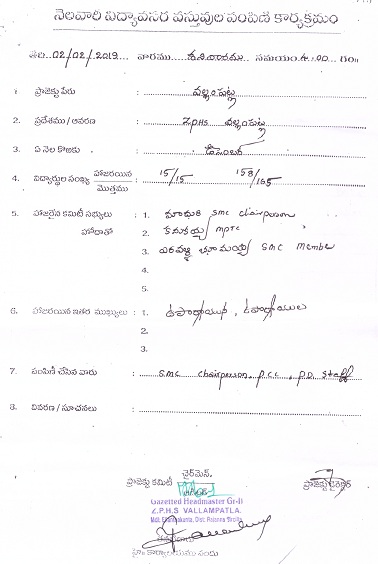 నెలవారీ విద్యావసర వస్తువుల పంపిణి కార్యక్రమం
తేది. 02/02/2019 వారము శనివారము సమయం 4:00
1. ప్రాజెక్టు పేరు : వల్లంపట్ల
2. ప్రదేశము / ఆవరణ : ZPHS వల్లంపట్ల
3. ఏ నెల కొఱకు : డిసెంబర్
4. విద్యార్థుల సంఖ్య హాజరయిన / మొత్తము : 15/15 158/165
5. హాజరైన కమిటీ సభ్యులు : 1. మాధురి SMC Chairperson
హోదాతో 2. కనకయ్య MPTC
3. భూమయ్య SMC Member
4.
5.
6. హాజరయిన ఇతర ముఖ్యులు : 1. ఉపాధ్యాయులు
2.
3.
7. పంపిణీ చేసిన వారు : SMC Chairperson, P.C.C, P.D. Staff
8. వివరణ / సూచనలు :
చైర్‌మెన్,
ప్రాజెక్టు కమిటీ ప్రాజెక్టు డైరెక్టర్
Gazetted Headmaster Gr-II
Z.P.H.S VALLAMPATLA.
Mdl. Ellanthakunta, Dist. Rajanna Sircilla